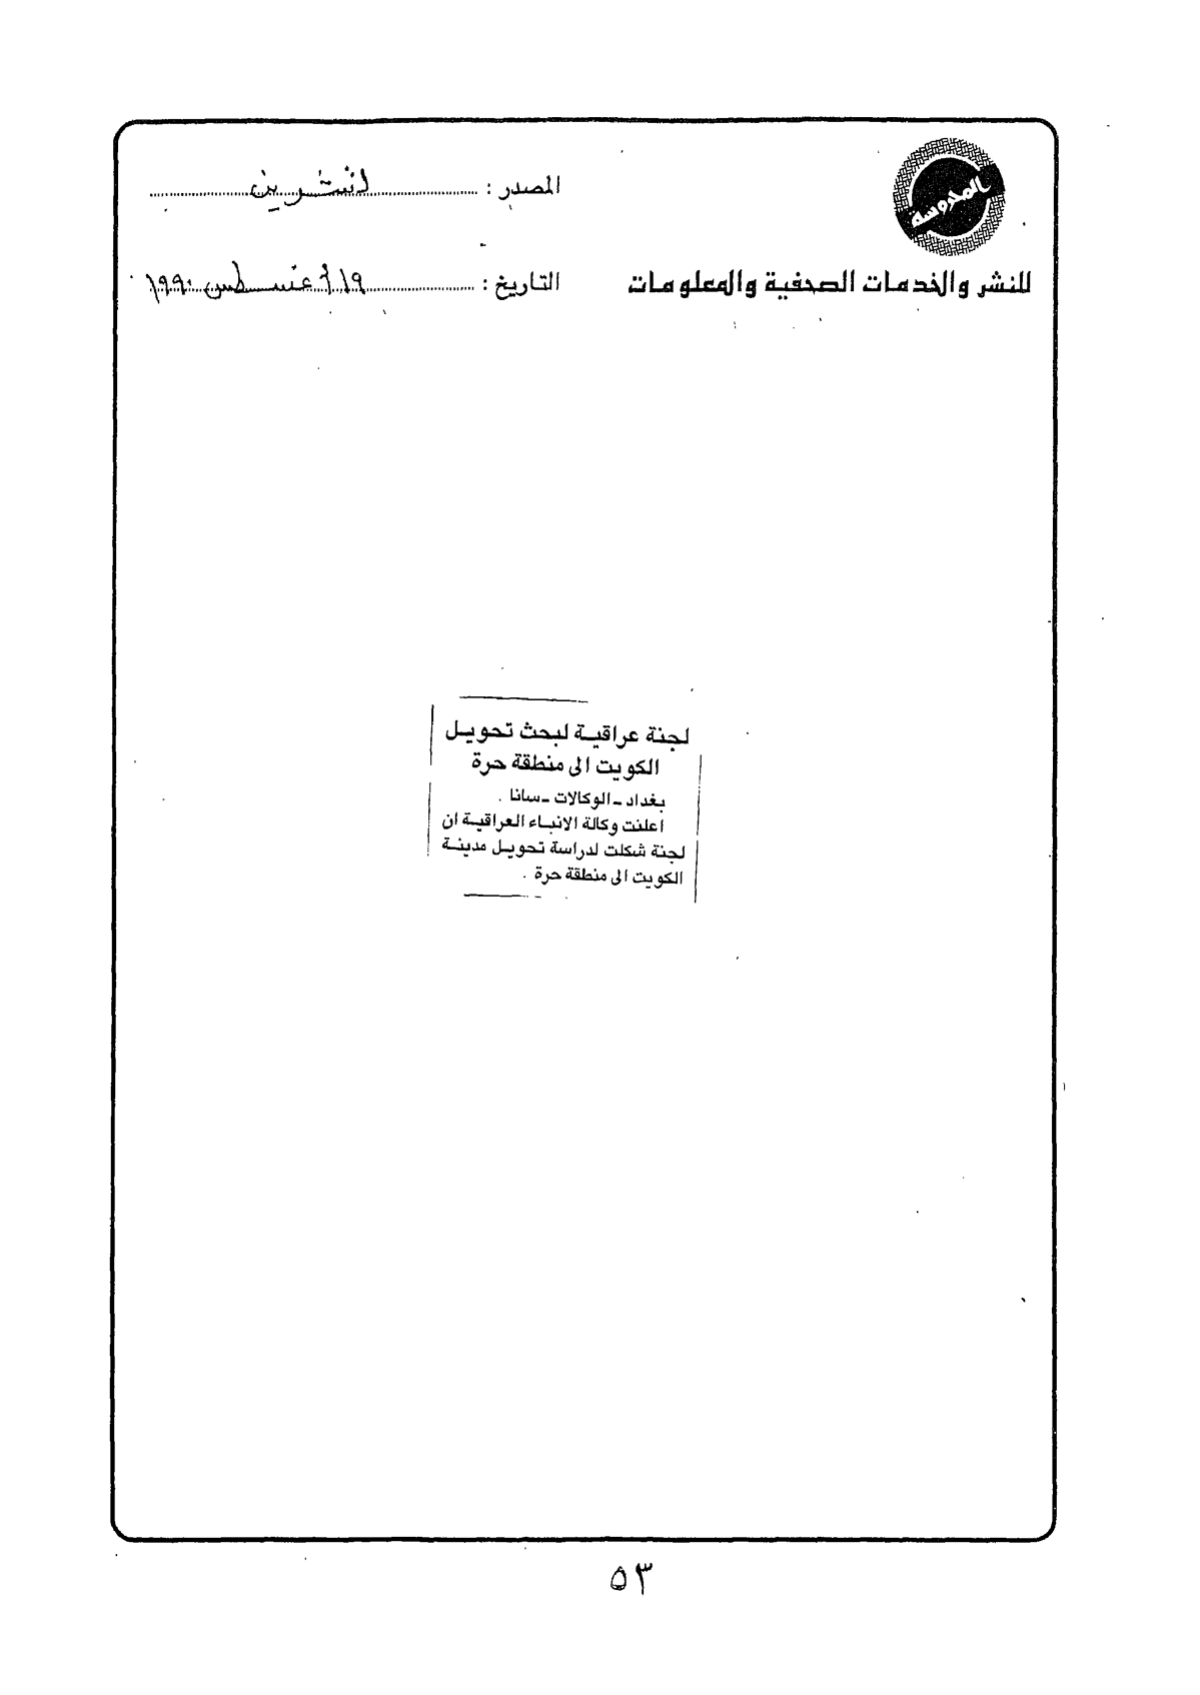 المحروسة
المصدر : تشرين
للنشر والخدمات الصحفية والمعلومات
التاريخ : ١٩ أغسطس ١٩٩٠
لجنة عراقيـة لبحث تحويـل
الكويت الى منطقة حرة
بغداد ـ الوكالات ـ سانا .
اعلنت وكالة الانبـاء العراقيـة ان
لجنة شكلت لدراسة تحويـل مدينـة
الكويت الى منطقة حرة .
٥٣